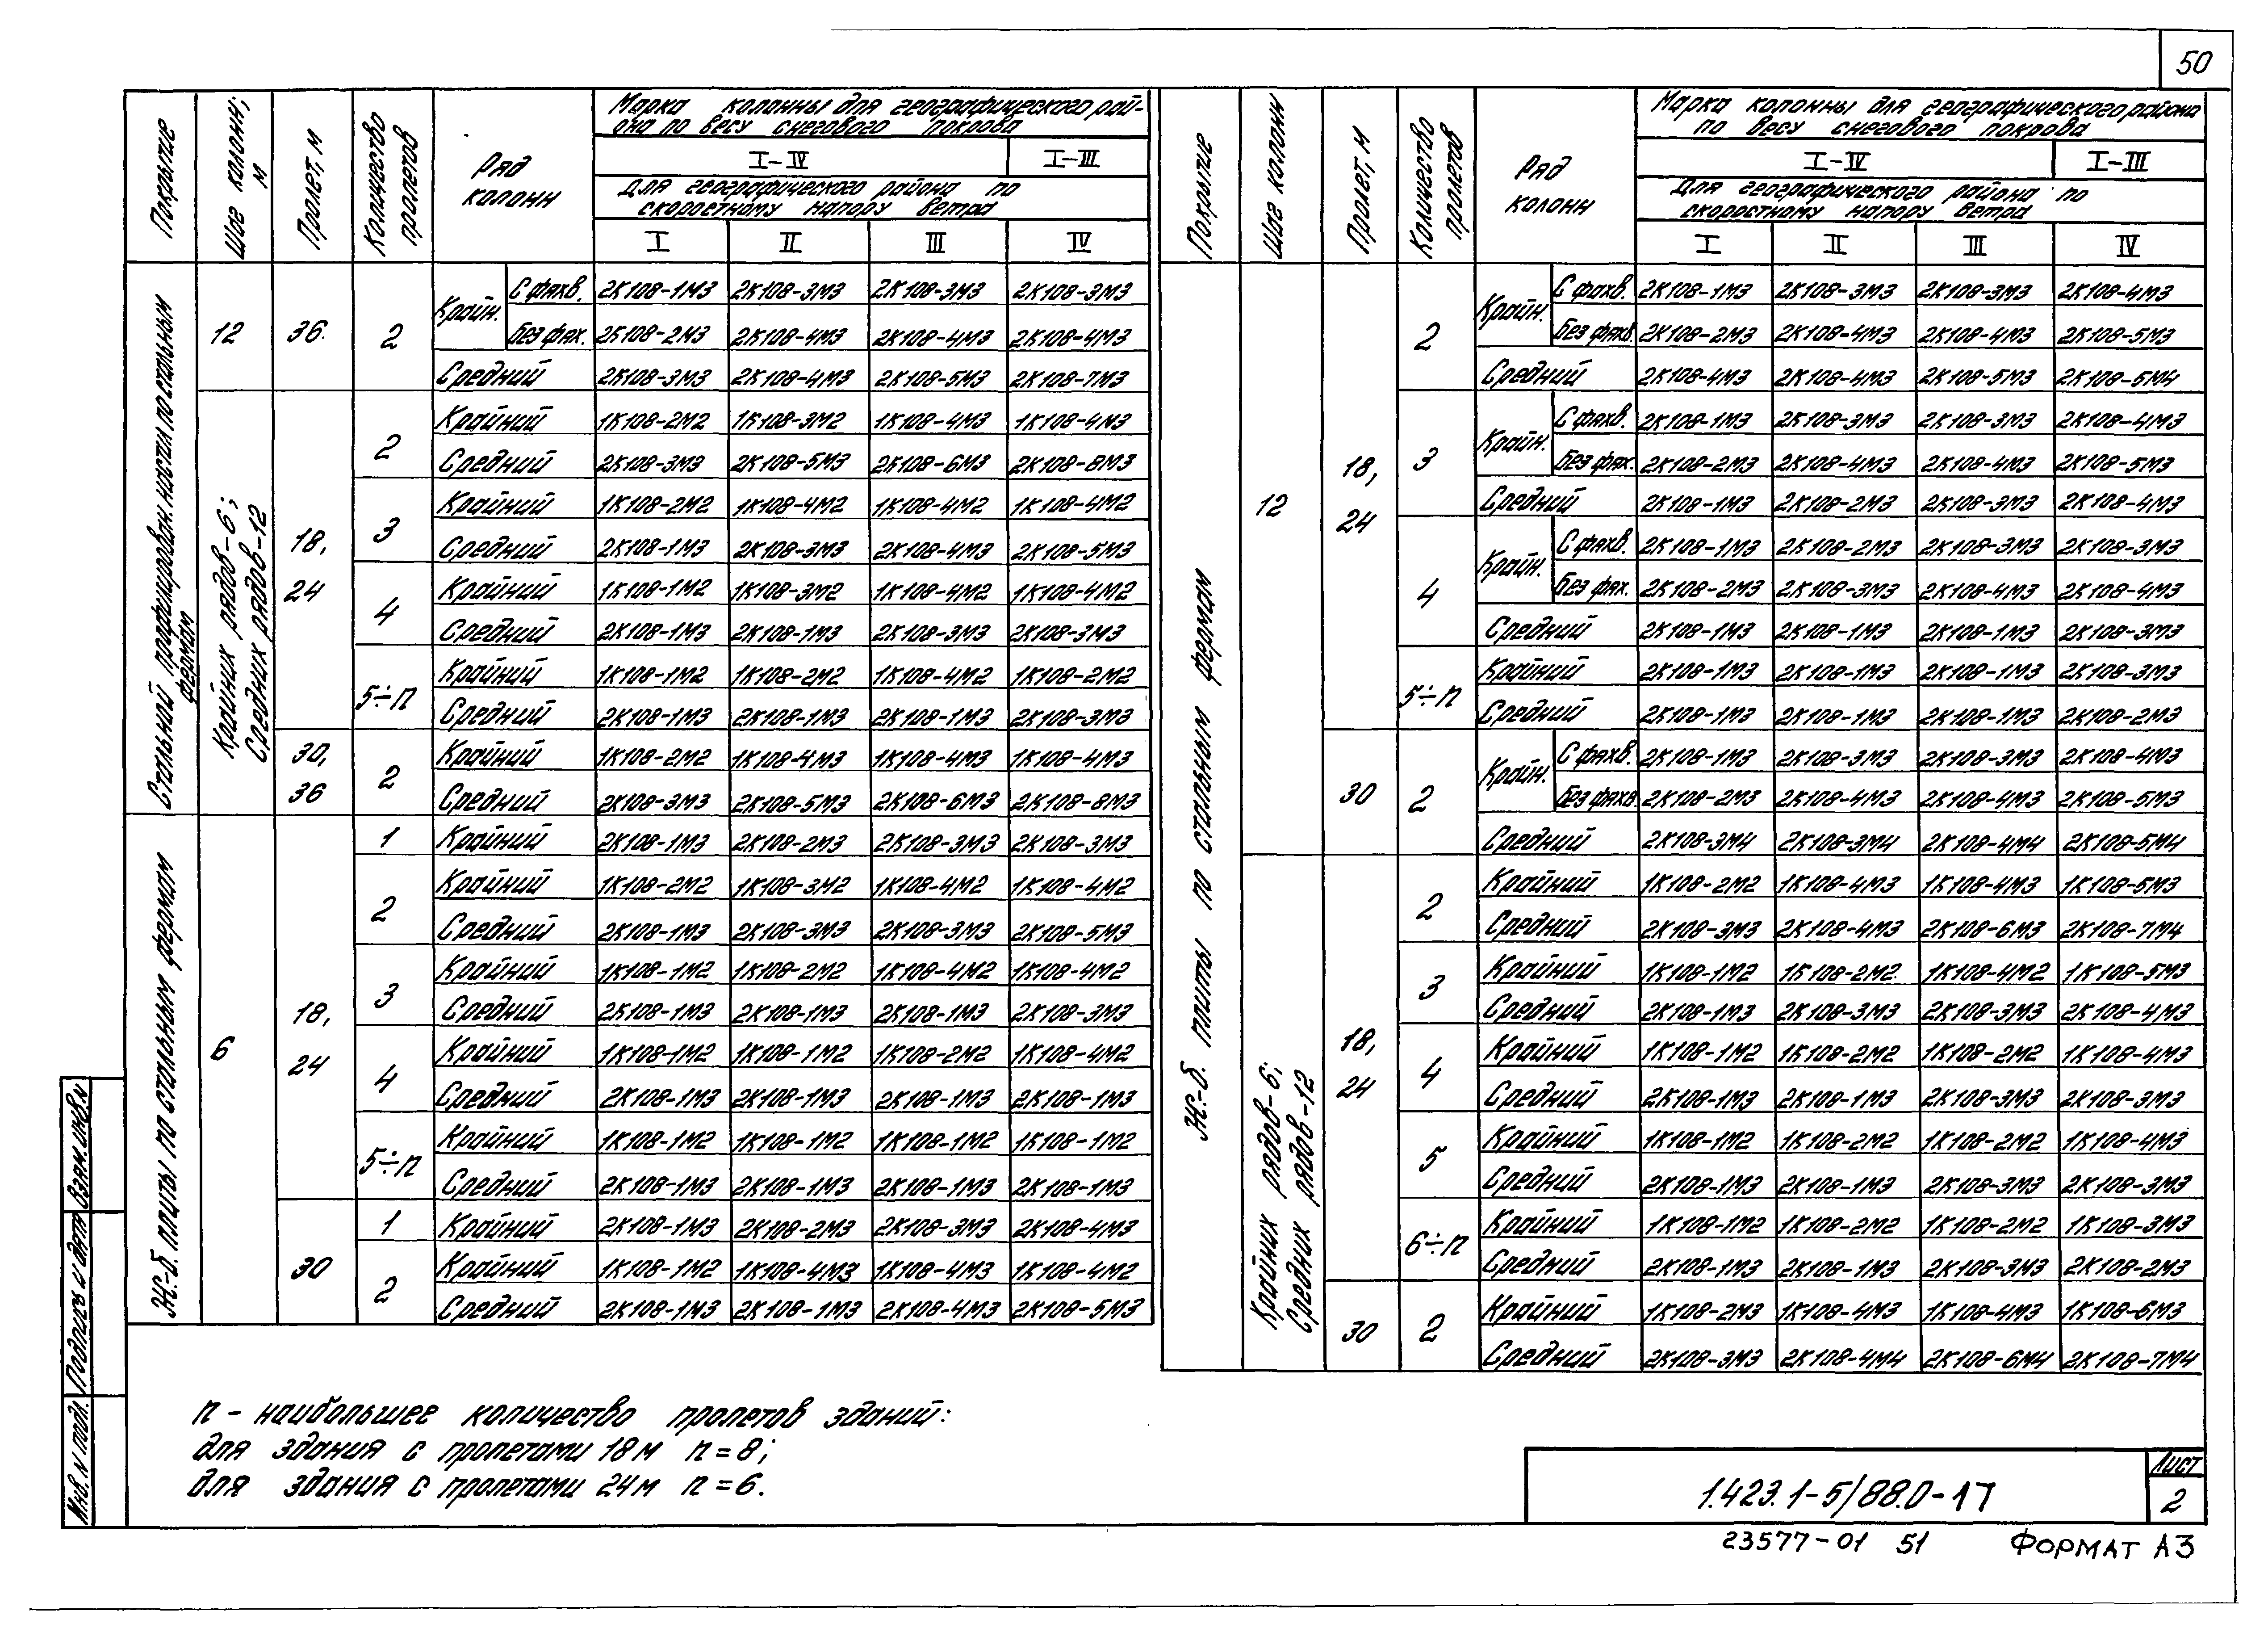 50
Покрытие
Шаг колонн, м
Пролет, м
Количество пролетов
Ряд колонн
Марка колонны для географического рай-
она по весу снегового покрова
I-IV I-III
Для географического района по
скоростному напору ветра
I II III IV
Стальной профилирован. настил по стальным фермам
12 36. 2
Крайн. С фахв. 2К108-1М3 2К108-3М3 2К108-3М3 2К108-3М3
Без фах. 2К108-2М3 2К108-4М3 2К108-4М3 2К108-4М3
Средний 2К108-3М3 2К108-4М3 2К108-5М3 2К108-7М3
Крайних рядов-6; Средних рядов-12
18, 24
2 Крайний 1К108-2М2 1К108-3М2 1К108-4М3 1К108-4М3
Средний 2К108-3М3 2К108-5М3 2К108-6М3 2К108-8М3
3 Крайний 1К108-2М2 1К108-4М2 1К108-4М2 1К108-4М2
Средний 2К108-1М3 2К108-3М3 2К108-4М3 2К108-5М3
4 Крайний 1К108-1М2 1К108-3М2 1К108-4М2 1К108-4М2
Средний 2К108-1М3 2К108-1М3 2К108-3М3 2К108-3М3
5÷п Крайний 1К108-1М2 1К108-2М2 1К108-4М2 1К108-2М2
Средний 2К108-1М3 2К108-1М3 2К108-1М3 2К108-3М3
30, 36
2 Крайний 1К108-2М2 1К108-4М3 1К108-4М3 1К108-4М3
Средний 2К108-3М3 2К108-5М3 2К108-6М3 2К108-8М3
Ж.-б. плиты по стальным фермам
6
18, 24
1 Крайний 2К108-1М3 2К108-2М3 2К108-3М3 2К108-3М3
2 Крайний 1К108-2М2 1К108-3М2 1К108-4М2 1К108-4М2
Средний 2К108-1М3 2К108-3М3 2К108-3М3 2К108-5М3
3 Крайний 1К108-1М2 1К108-2М2 1К108-4М2 1К108-4М2
Средний 2К108-1М3 2К108-1М3 2К108-1М3 2К108-3М3
4 Крайний 1К108-1М2 1К108-1М2 1К108-2М2 1К108-4М2
Средний 2К108-1М3 2К108-1М3 2К108-1М3 2К108-1М3
5÷п Крайний 1К108-1М2 1К108-1М2 1К108-1М2 1К108-1М2
Средний 2К108-1М3 2К108-1М3 2К108-1М3 2К108-1М3
30
1 Крайний 2К108-1М3 2К108-2М3 2К108-3М3 2К108-4М3
2 Крайний 1К108-1М2 1К108-4М3 1К108-4М3 1К108-4М2
Средний 2К108-1М3 2К108-1М3 2К108-4М3 2К108-5М3
Покрытие
Шаг колонн
Пролет, м
Количество пролетов
Ряд колонн
Марка колонны для географического района
по весу снегового покрова
I-IV I-III
Для географического района по
скоростному напору ветра
I II III IV
Ж.-б. плиты по стальным фермам
12
18, 24
2 Крайн. С фахв. 2К108-1М3 2К108-3М3 2К108-3М3 2К108-4М3
Без фахв. 2К108-2М3 2К108-4М3 2К108-4М3 2К108-5М3
Средний 2К108-4М3 2К108-4М3 2К108-5М3 2К108-5М4
3 Крайн. С фахв. 2К108-1М3 2К108-3М3 2К108-3М3 2К108-4М3
Без фах. 2К108-2М3 2К108-4М3 2К108-4М3 2К108-5М3
Средний 2К108-1М3 2К108-2М3 2К108-3М3 2К108-4М3
4 Крайн. С фахв. 2К108-1М3 2К108-2М3 2К108-3М3 2К108-3М3
Без фах. 2К108-2М3 2К108-3М3 2К108-4М3 2К108-4М3
Средний 2К108-1М3 2К108-1М3 2К108-1М3 2К108-3М3
5÷п Крайний 2К108-1М3 2К108-1М3 2К108-1М3 2К108-3М3
Средний 2К108-1М3 2К108-1М3 2К108-1М3 2К108-2М3
30
2 Крайн. С фахв. 2К108-1М3 2К108-3М3 2К108-3М3 2К108-4М3
Без фахв 2К108-2М3 2К108-4М3 2К108-4М3 2К108-5М3
Средний 2К108-3М4 2К108-3М4 2К108-4М4 2К108-5М4
Крайних рядов-6; Средних рядов-12
18, 24
2 Крайний 1К108-2М2 1К108-4М3 1К108-4М3 1К108-5М3
Средний 2К108-3М3 2К108-4М3 2К108-6М3 2К108-7М4
3 Крайний 1К108-1М2 1К108-2М2. 1К108-4М2 1К108-5М3
Средний 2К108-1М3 2К108-3М3 2К108-3М3 2К108-4М3
4 Крайний 1К108-1М2 1К108-2М2 1К108-2М2 1К108-4М3
Средний 2К108-1М3 2К108-1М3 2К108-3М3 2К108-3М3
5 Крайний 1К108-1М2 1К108-2М2 1К108-2М2 1К108-4М3
Средний 2К108-1М3 2К108-1М3 2К108-3М3 2К108-3М3
6÷п Крайний 1К108-1М2 1К108-2М2 1К108-2М2 1К108-3М3
Средний 2К108-1М3 2К108-1М3 2К108-3М3 2К108-2М3
30
2 Крайний 1К108-2М3 1К108-4М3 1К108-4М3 1К108-6М3
Средний 2К108-3М3 2К108-4М4 2К108-6М4 2К108-7М4
п - наибольшее количество пролетов зданий:
для здания с пролетами 18м п=8;
для здания с пролетами 24м п=6.
Инв. N подл. Подпись и дата Взам. инв. N
1.423.1-5/88.0-17
Лист
2
23577-01 51 Формат А3